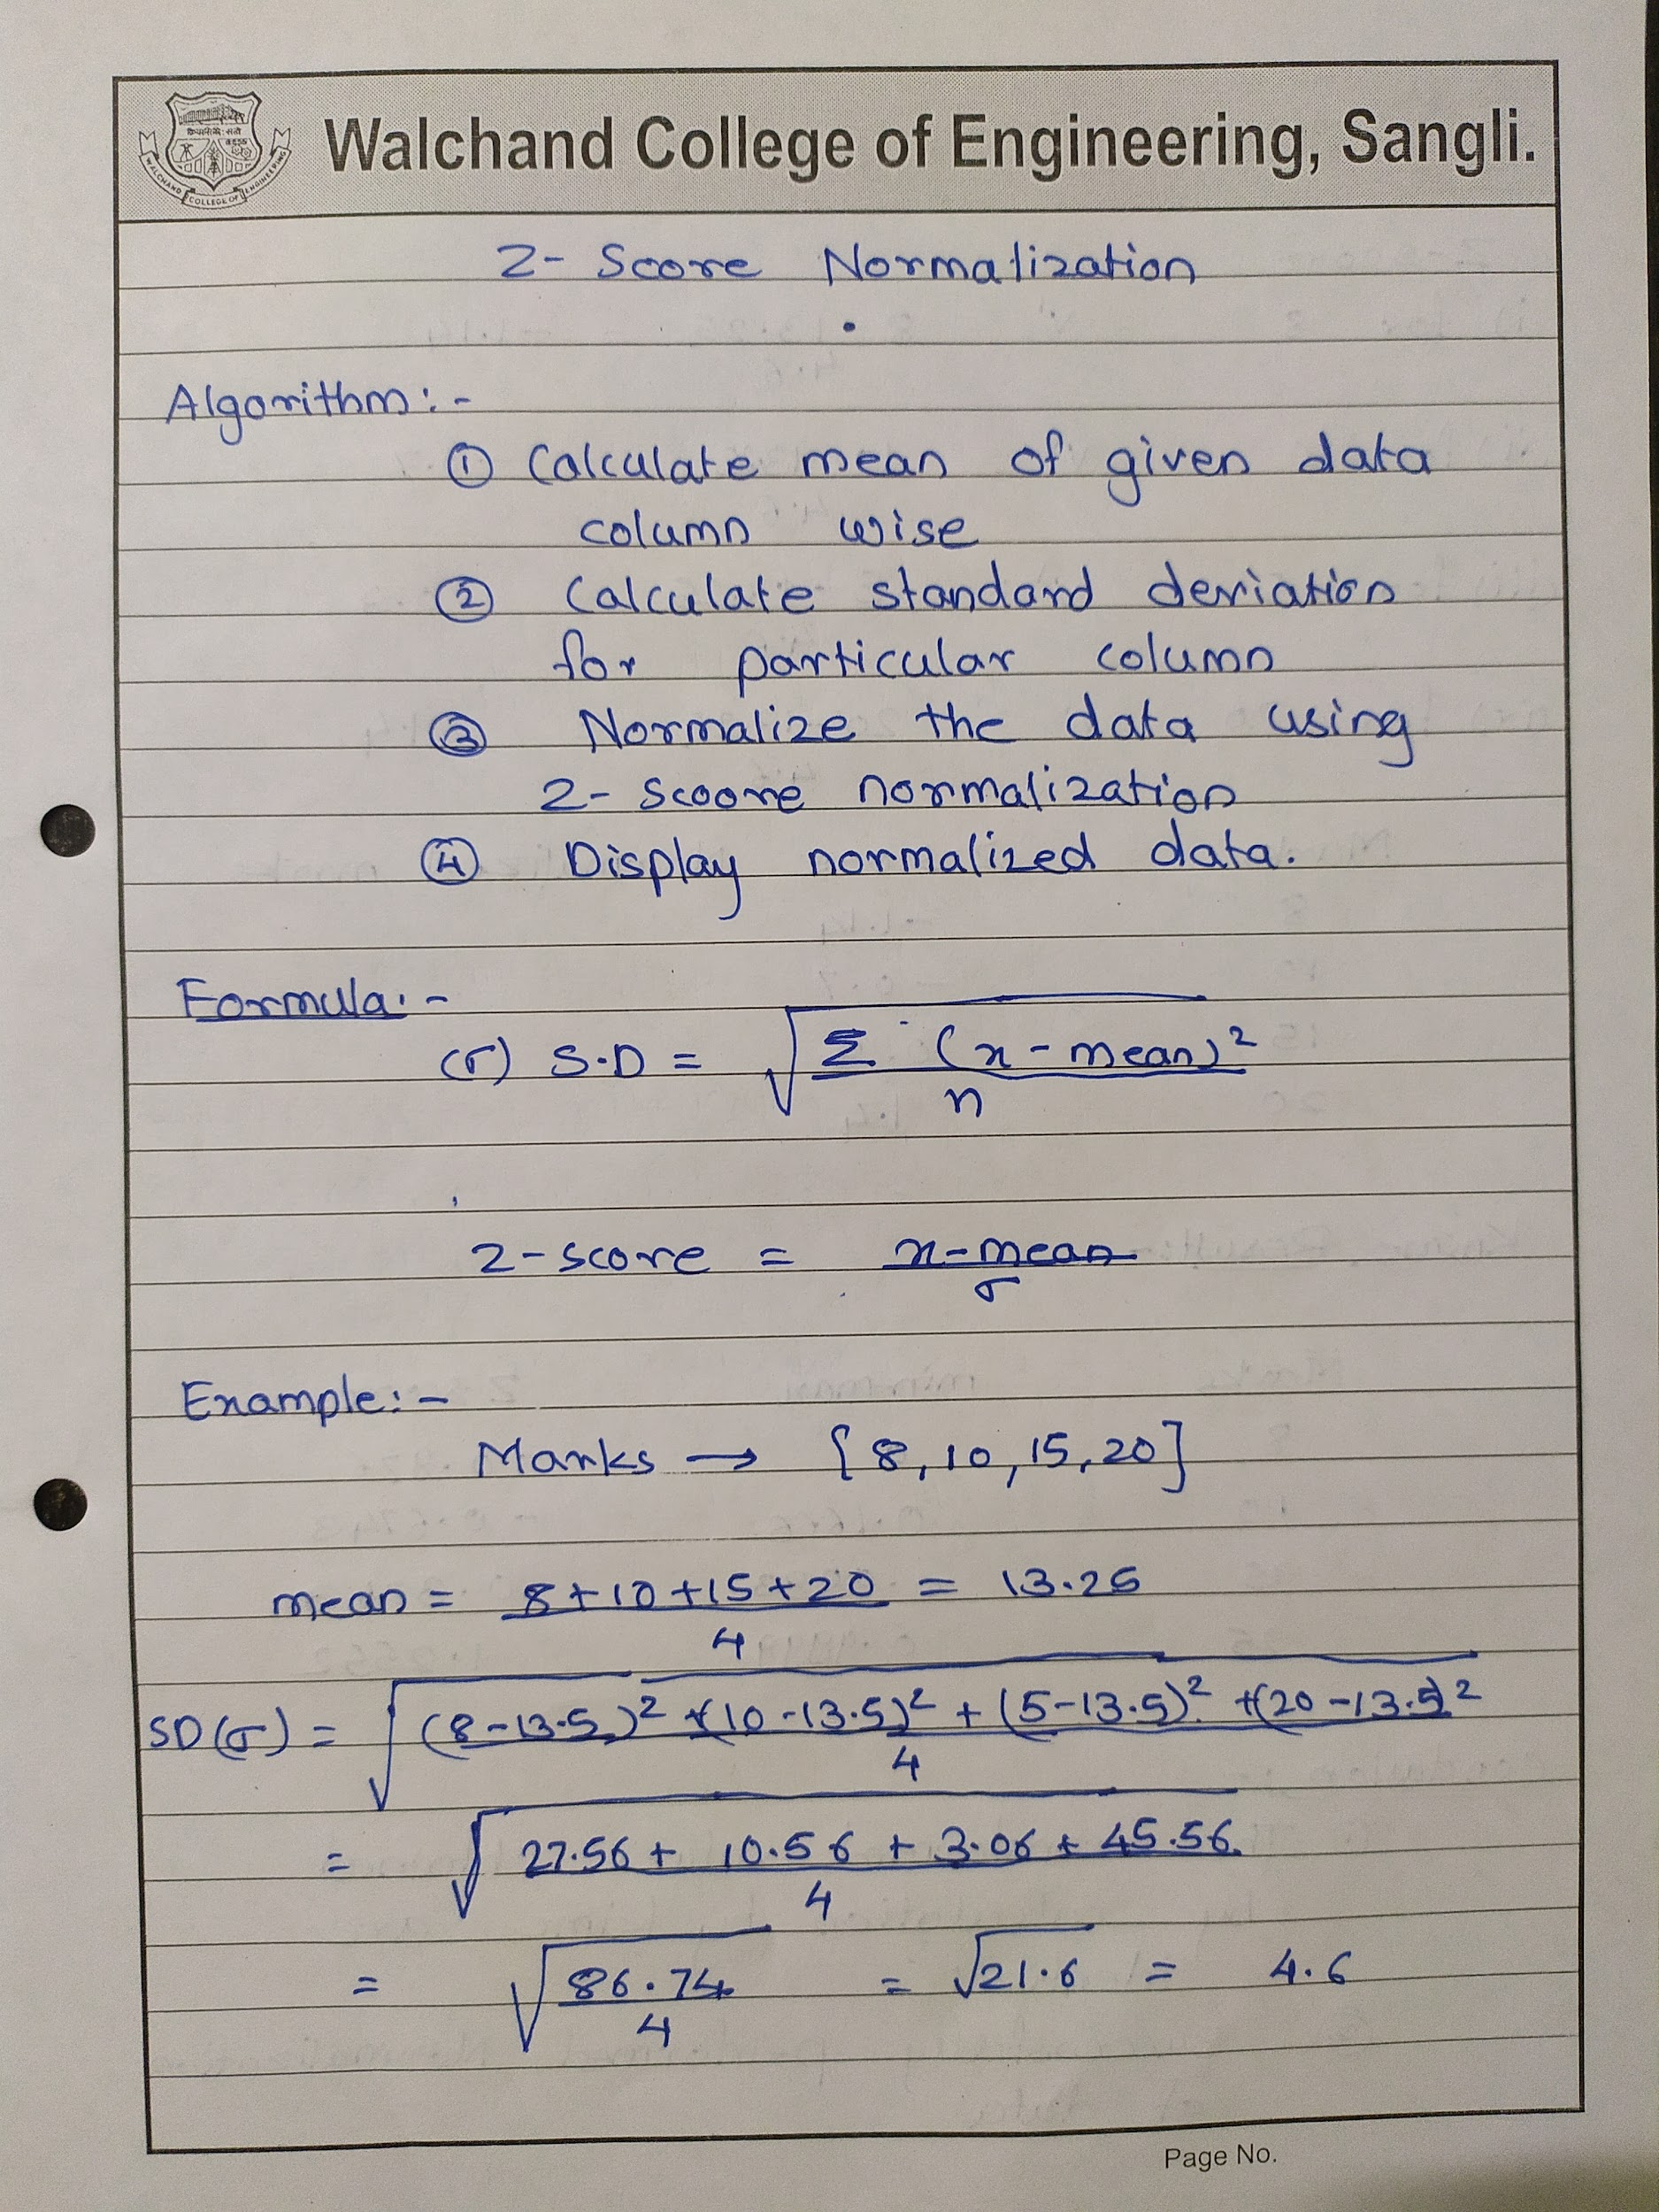 WALCHAND COLLEGE OF ENGINEERING
Walchand College of Engineering, Sangli.
Z- Score Normalization
Algorithm:-
① Calculate mean of given data
column wise
② Calculate standard deviation
for particular column
③ Normalize the data using
Z- Scoore normalization
④ Display normalized data.
Formula:-
(σ) S.D = √ Σ (x - mean)²
n
Z-score = x-mean
σ
Example:-
Marks → {8, 10, 15, 20]
mean = 8+10+15+20 = 13.25
4
SD(σ) = √ (8-13.5)² +(10-13.5)² + (5-13.5)² +(20-13.5)²
4
= √ 27.56 + 10.56 + 3.06 + 45.56
4
= √ 86.74 = √21.6 = 4.6
4
Page No.